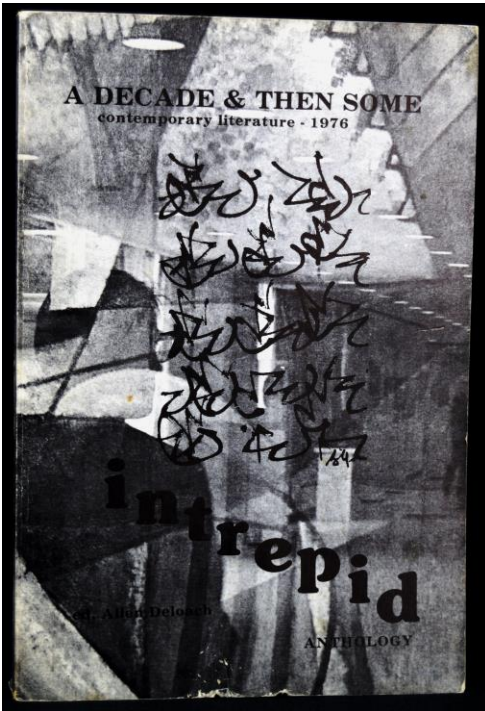 A DECADE & THEN SOME
contemporary literature - 1976
intrepid
ed. Allen Deloach
ANTHOLOGY